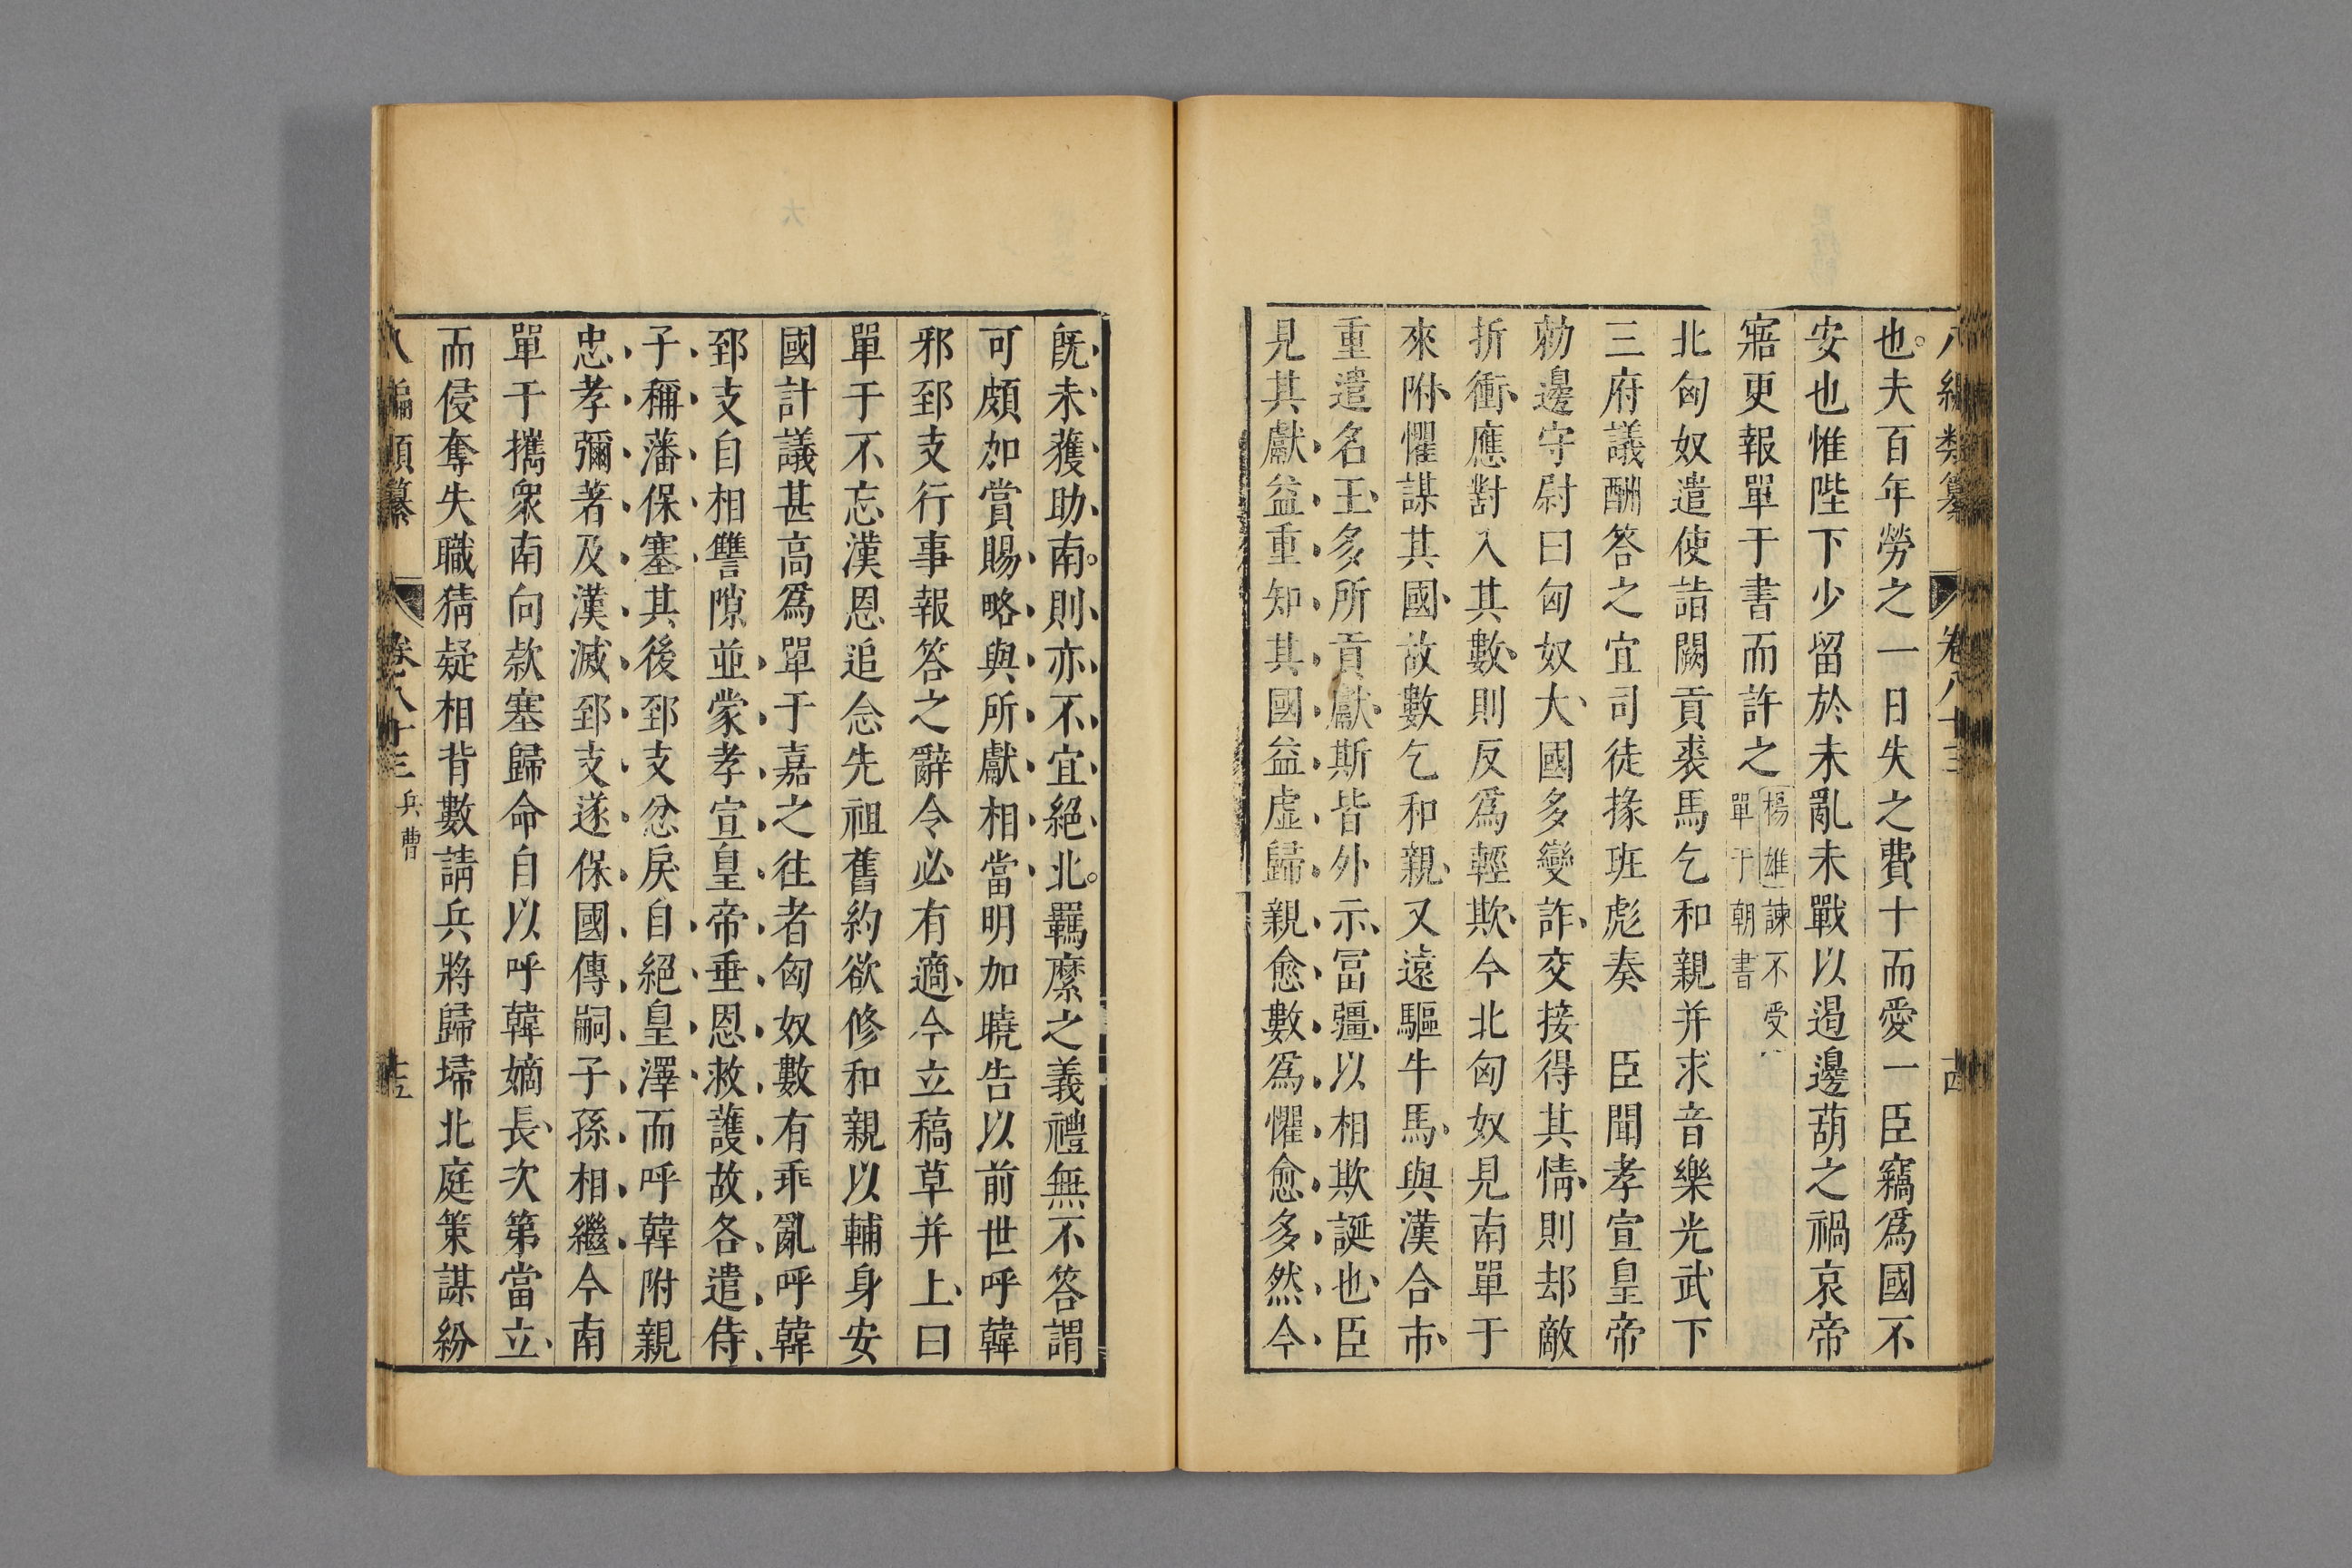 八編類纂 卷八十三 十四
也。夫百年勞之一日失之費十而愛一臣竊爲國不
安也惟陛下少留於未亂未戰以遏邊萌之禍哀帝
寤更報單于書而許之楊雄諫不受
單于朝書
北匈奴遣使詣闕貢裘馬乞和親并求音樂光武下
三府議酬答之宜司徒掾班彪奏 臣聞孝宣皇帝
勑邊守尉曰匈奴大、國多變詐、交接得其情、則却敵
折衝、應對入其數、則反爲輕欺、今北匈奴見南單于
來附、懼謀其國、故數乞和親、又遠驅牛馬、與漢合市、
重遣名王、多所貢獻、斯皆外示、冨疆、以相欺誕也、臣
見其獻、益、重、知、其、國、益、虛、歸、親、愈、數、爲、懼、愈、多、然、今、
旣、未、獲、助、南。則、亦、不、宜、絕、北。羈縻之義禮無不答謂
可頗加賞賜、略、與、所、獻、相、當、明加曉告以前世呼韓
邪郅支行事報答之辭令必有適、今立稿草并上、曰
單于不忘漢恩追念先祖舊約欲修和親以輔身安
國計議甚高爲單于嘉之往者匈奴數有乖亂呼韓
郅支自相讐隙並、蒙、孝、宣、皇、帝、垂、恩、救、護、故、各、遣、侍、
子、稱、藩、保、塞、其後郅支忿戾自、絕、皇、澤、而呼韓附親
忠、孝、彌、著、及、漢、滅、郅、支、遂、保、國、傳、嗣、子、孫、相、繼、今南
單于攜衆南向款塞歸命自以呼韓嫡長、次第當立、
而侵奪失職猜疑相背數請兵將歸埽北庭策謀紛
八編類纂 卷八十三 兵曹 十五